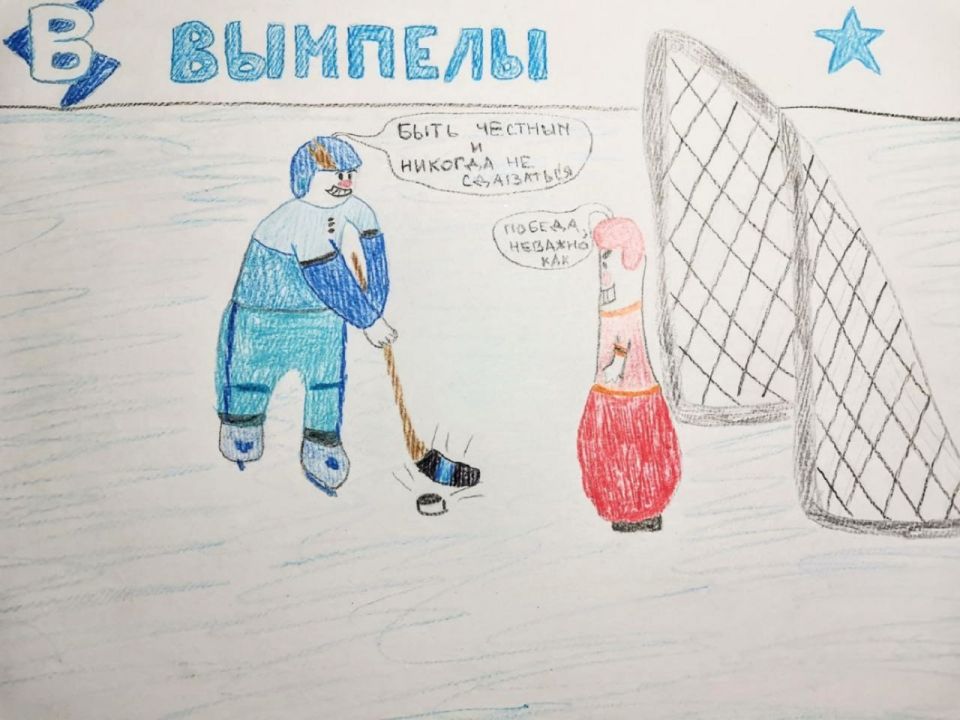 В ВЫМПЕЛЫ
БЫТЬ ЧЕСТНЫМ
И
НИКОГДА НЕ
СДАВАТЬСЯ
ПОБЕДА,
НЕВАЖНО
КАК